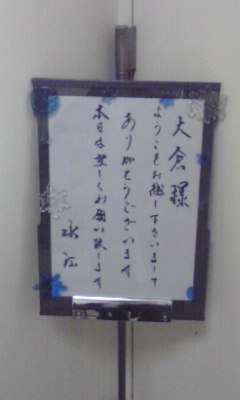 大倉様
ようこそお越し下さいまして
ありがとうございます
本日は宜しくお願い致します
永江